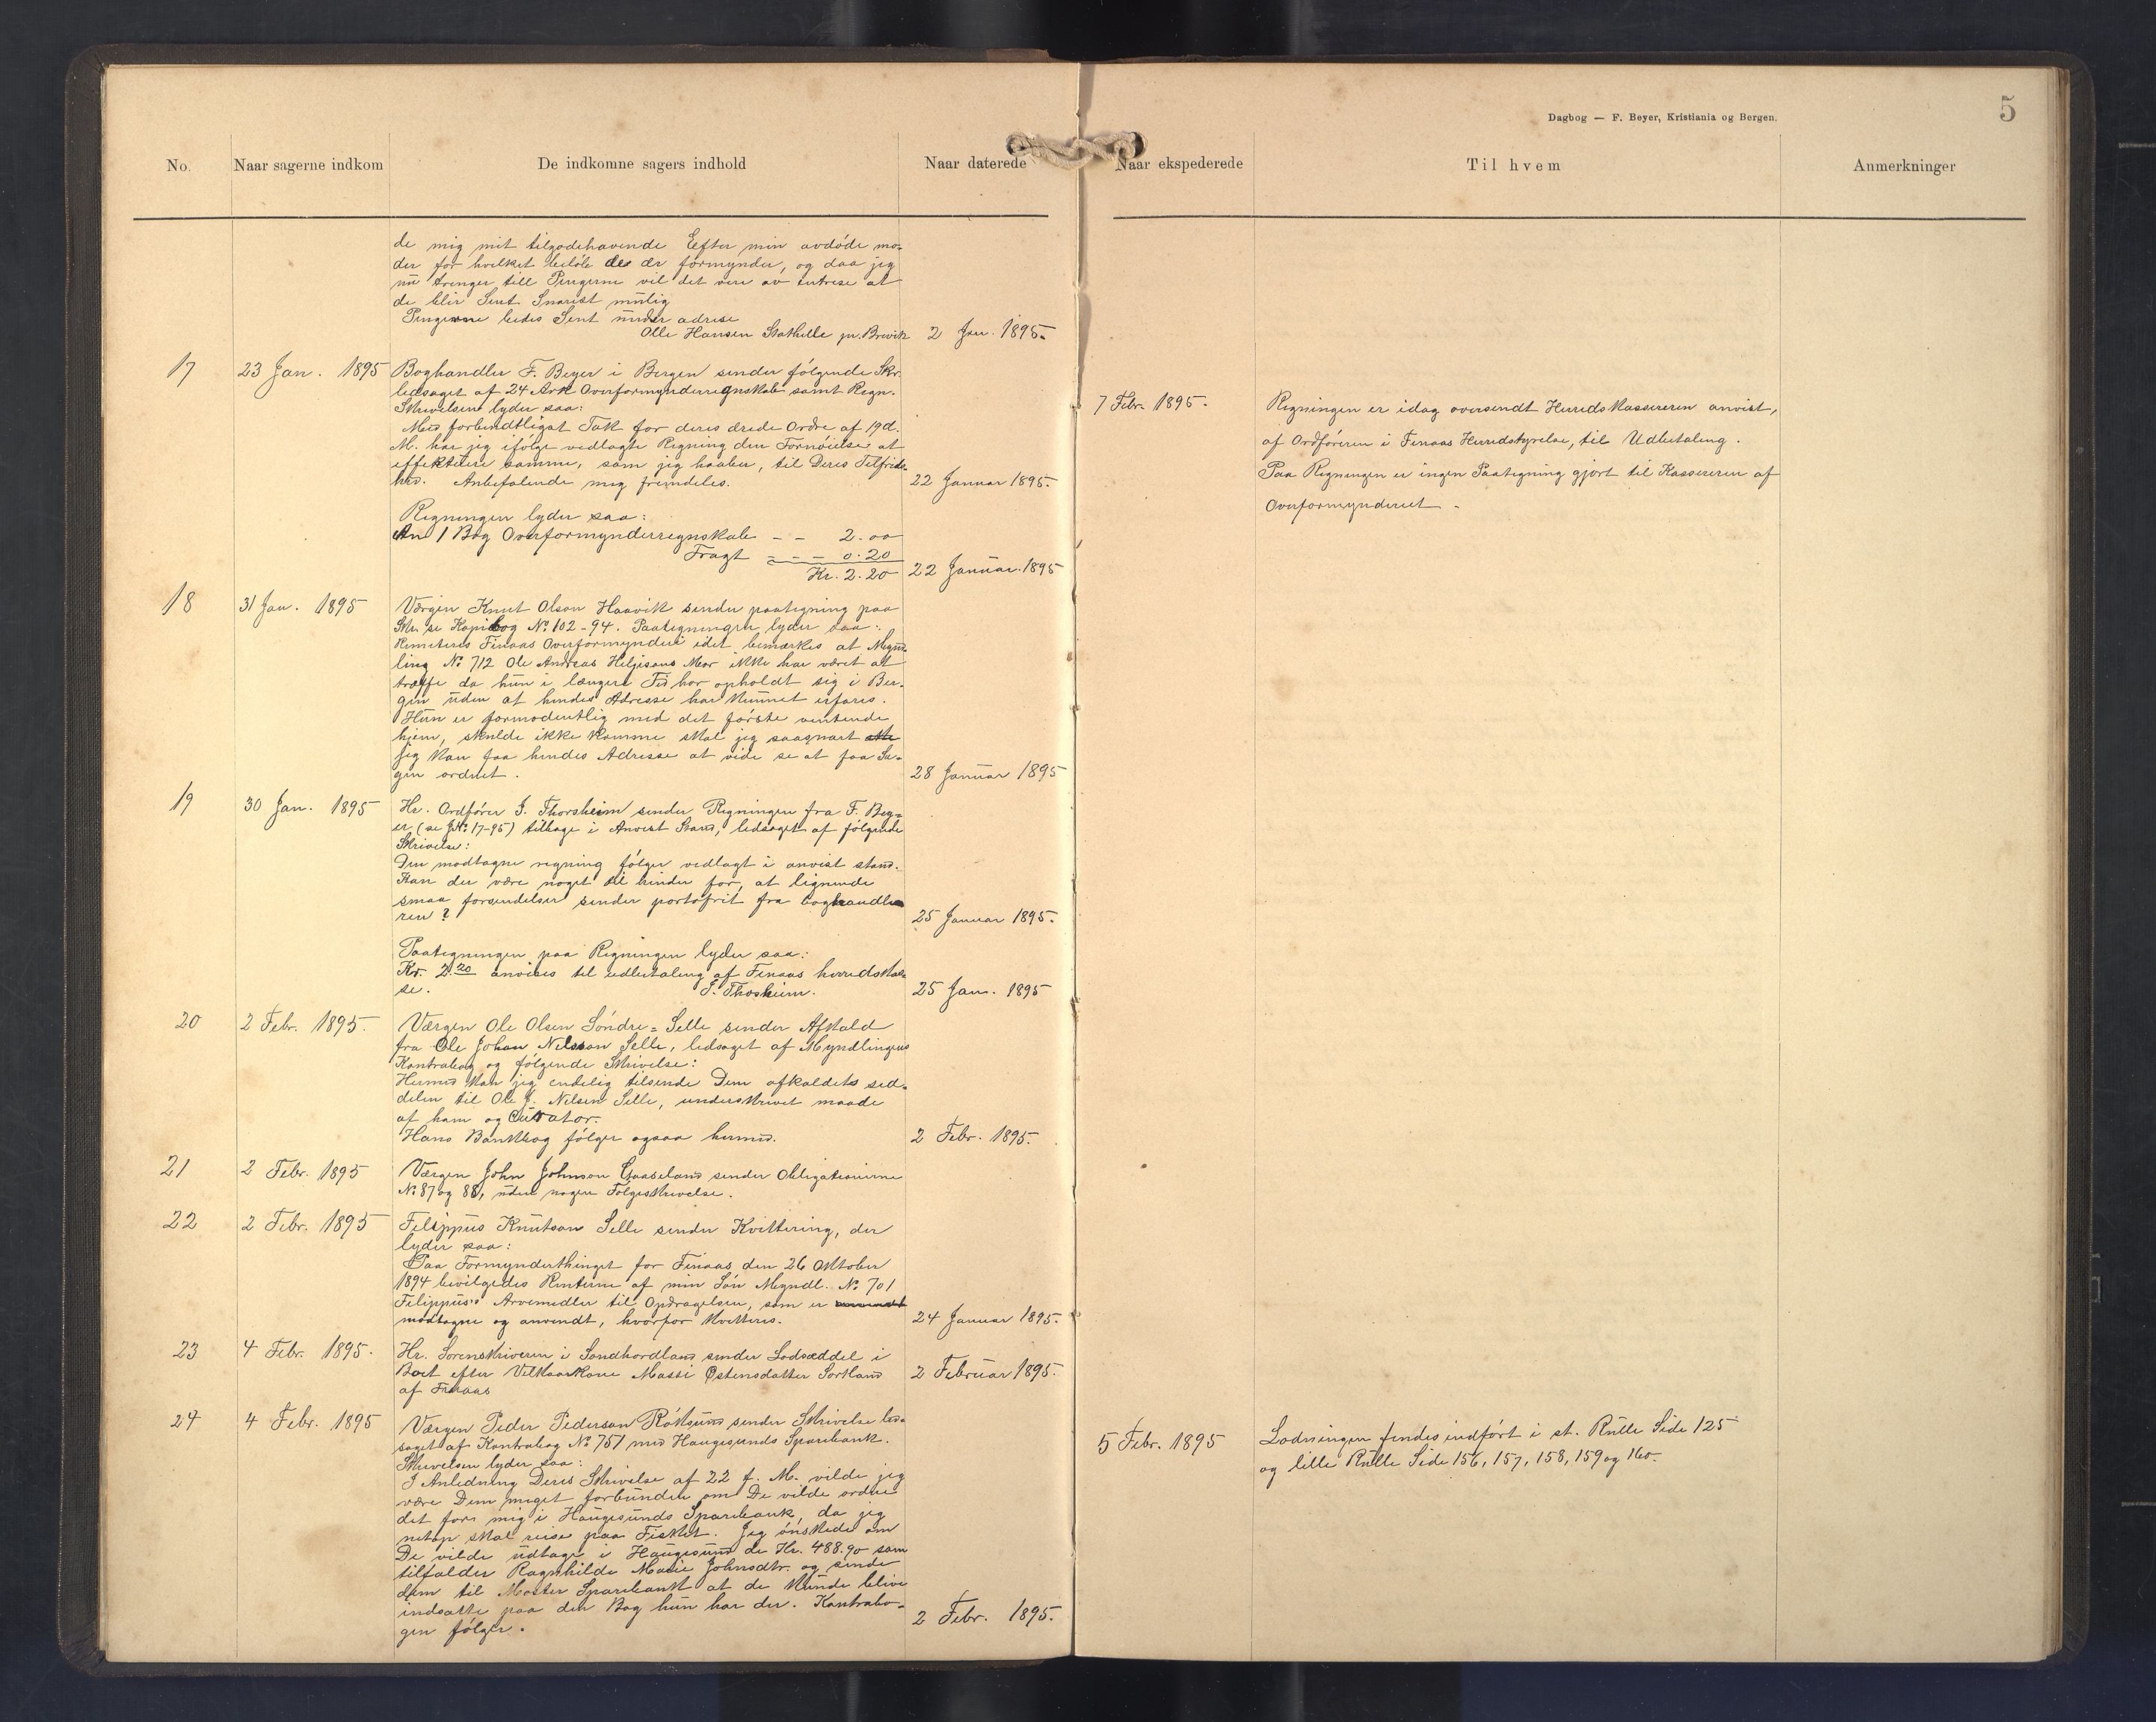 Dagbog — F. Beyer, Kristiania og Bergen.
5
No.
Naar sagerne indkom
De indkomne sagers indhold
Naar daterede
Naar ekspederede
Til hvem
Anmerkninger
de mig mit tilgodehavende Eefter min avdøde mo-
der for hvilket beløb des er formynder, og daa jeg
nu trenger till Pengerne vil det vere av intrese at
de blir Sent Snarest mulig
Pengerne bedes Sent under adrese
Olle Hansen Stathelle pr. Brevik 2 Jan. 1895.
17 23 Jan. 1895 Boghandler F. Beyer i Bergen sender følgende Skr.
ledsaget af 24 Ark Overformynderregnskab samt Regn.
Skrivelsen lyder saa:
Med forbindtligst Tak for deres ærede Ordre af 19 d.
M. har jeg ifølge vedlagte Regning den Fornøielse at
effektuere samme, som jeg haaber, til Deres Tilfreds-
hed. Anbefalende mig fremdeles. 22 Januar 1895.
Regningen lyder saa:
An 1 Bog Overformynderregnskab - - 2.00
Fragt - - - 0.20
Kr. 2.20 22 Januar. 1895
7 Febr. 1895. Regningen er idag oversendt Herredskassereren anvist,
af Ordføreren i Finaas Herredstyrelse, til Udbetaling.
Paa Regningen er ingen Paategning gjort til Kassereren af
Overformynderiet.
18 31 Jan. 1895 Værgen Knut Olson Haavik sender paategning paa
Skr. se Kopibog No. 102-94. Paategningen lyder saa:
Remiteres Finaas Overformynderi idet bemærkes at Mynd-
ling No 712 Ole Andreas Heljesons Mor ikke har været at
træffe da hun i længere Tid har opholdt sig i Ber-
gen uden at hendes Adresse har kunnet erfares.
Hun er formodentlig med det første ventende
hjem, skulde ikke komme skal jeg saasnart
jeg kan faa hendes Adresse at vide se at faa Sa-
gen ordnet. 28 Januar 1895
19 30 Jan. 1895 Hr. Ordfører J. Thorsheim sender Regningen fra F. Bey-
er (se J.No. 17-95) tilbage i Anvist Stand, ledsaget af følgende
Skrivelse:
Den modtagne regning følger vedlagt i anvist stand.
Kan der være noget til hinder for, at lignende
smaa forsendelser sender portofrit fra boghandle-
ren? 25 Januar 1895.
Paategningen paa Regningen lyder saa:
Kr. 2.20 anvises til udbetaling af Finaas herredskas-
se. J. Thosheim. 25 Jan. 1895
20 2 Febr. 1895. Værgen Ole Olsen Søndre-Selle sender Afkald
fra Ole Johan Nelsson Selle, ledsaget af Myndlingens
Kontrabog og følgende Skrivelse:
Hermed kan jeg endelig tilsende Dem afkaldets sed-
delen til Ole J. Nelsen Selle, underskrivet maade
af ham og Curator.
Hans Bankbog følger ogsaa hermed. 2 Febr. 1895.
21 2 Febr. 1895 Værgen John Johnson Gaaseland sender Obligationerne
No. 87 og 88, uden nogen Følgeskrivelse.
22 2 Febr. 1895 Filippus Knutson Selle sender Kvittering, der
lyder saa:
Paa Formynderthinget for Finaas den 26 Oktober
1894 bevilgedes Renterne af min Søn Myndl. No 701
Filippus's Arvemidler til Opdragelsen, som er
modtagne og anvendt, hvorfor kvitteres. 24 Januar 1895.
23 4 Febr. 1895. Hr. Sorenskriveren i Søndhordland sender Lodseddel i
Boet efter Vilkaarskone Massi Østensdatter Sortland
af Finaas 2 Februar 1895.
24 4 Febr. 1895 Værgen Peder Pederson Røksund sender Skrivelse led-
saget af Kontrabog No 751 med Haugesunds Sparebank.
Skrivelsen lyder saa:
I Anledning Deres Skrivelse af 22 f. M. vilde jeg
være Dem meget forbunden om De vilde ordne
det for mig i Haugesunds Sparebank, da jeg
netop skal reise paa Fisket. Jeg ønskede om
De vilde udtage i Haugesund de Kr. 488.90 som
tilfalder Ragnhilde Marie Johnsdtr. og sende
dem til Moster Sparebank at de kunde blive
indsatte paa den Bog hun har der. Kontrabo-
gen følger. 2 Febr. 1895.
5 Febr. 1895 Lodningen findes indført i st. Rulle Side 125
og lille Rulle Side 156, 157, 158, 159 og 160.